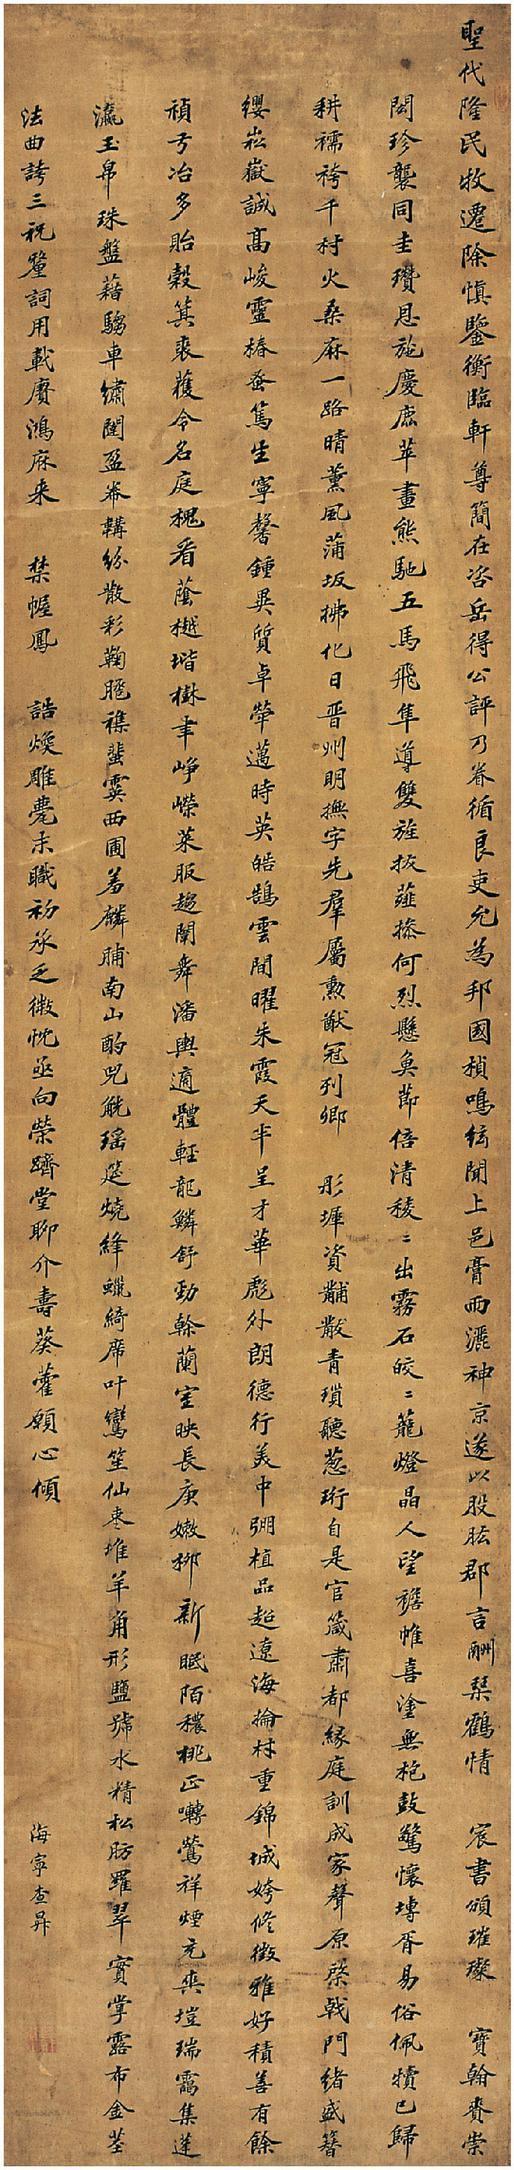 聖代隆民牧遷除慎鑒衡臨軒尊簡在咨岳得公評乃眷循良吏允為邦國楨鳴絃聞上邑膏雨灑神京遂以股肱郡言酬琴鶴情 宸書頒璀璨 寶翰賚崇
閎珍襲同圭瓚恩施慶鹿苹畫熊馳五馬飛隼導雙旌拔薤摻何烈懸魚節倍清稜〻出霧石皎〻蘢燈晶人望襜帷喜塗無枹鼓驚懷塼胥易俗佩犢已歸
耕襦袴千村火桑麻一路晴薰風蒲坂拂化日晋州明撫字先羣屬勲猷冠列卿 彤墀資黼黻青瑣聽蔥珩自是官箴肅都緣庭訓成家聲原棨戟門緒盛簪
纓崧嶽誠高峻靈椿蚤篤生寧馨鍾異質卓犖邁時英皓鵠雲間曜朱霞天半呈才華彪外朗德行美中弸植品超遼海掄材重錦城姱修徵雅好積善有餘
禎弓冶多貽穀箕裘蒦令名庭槐看蔭樾堦樹聿崢嶸萊服趨闈舞潘輿適體輕龍鱗舒勁榦蘭室映長庚嫩柳新眠陌穠桃正囀鶯祥煙充奕塏瑞靄集蓬
瀛玉帛珠盤藉騶車繡闥盈帣韝紛散彩鞠䠆襍蜚霙西圃羞麟脯南山酌兕觥瑶筵燒絳蠟綺席叶鸞笙仙棗堆羊角形鹽號水精松肪羅翠 實掌露布金莖
法曲誇三祝釐詞用載賡鴻庥来 禁幄鳳 誥煥雕甍末職初承乏微忱亟向榮躋堂聊介壽葵藿願心傾
海寧查昇